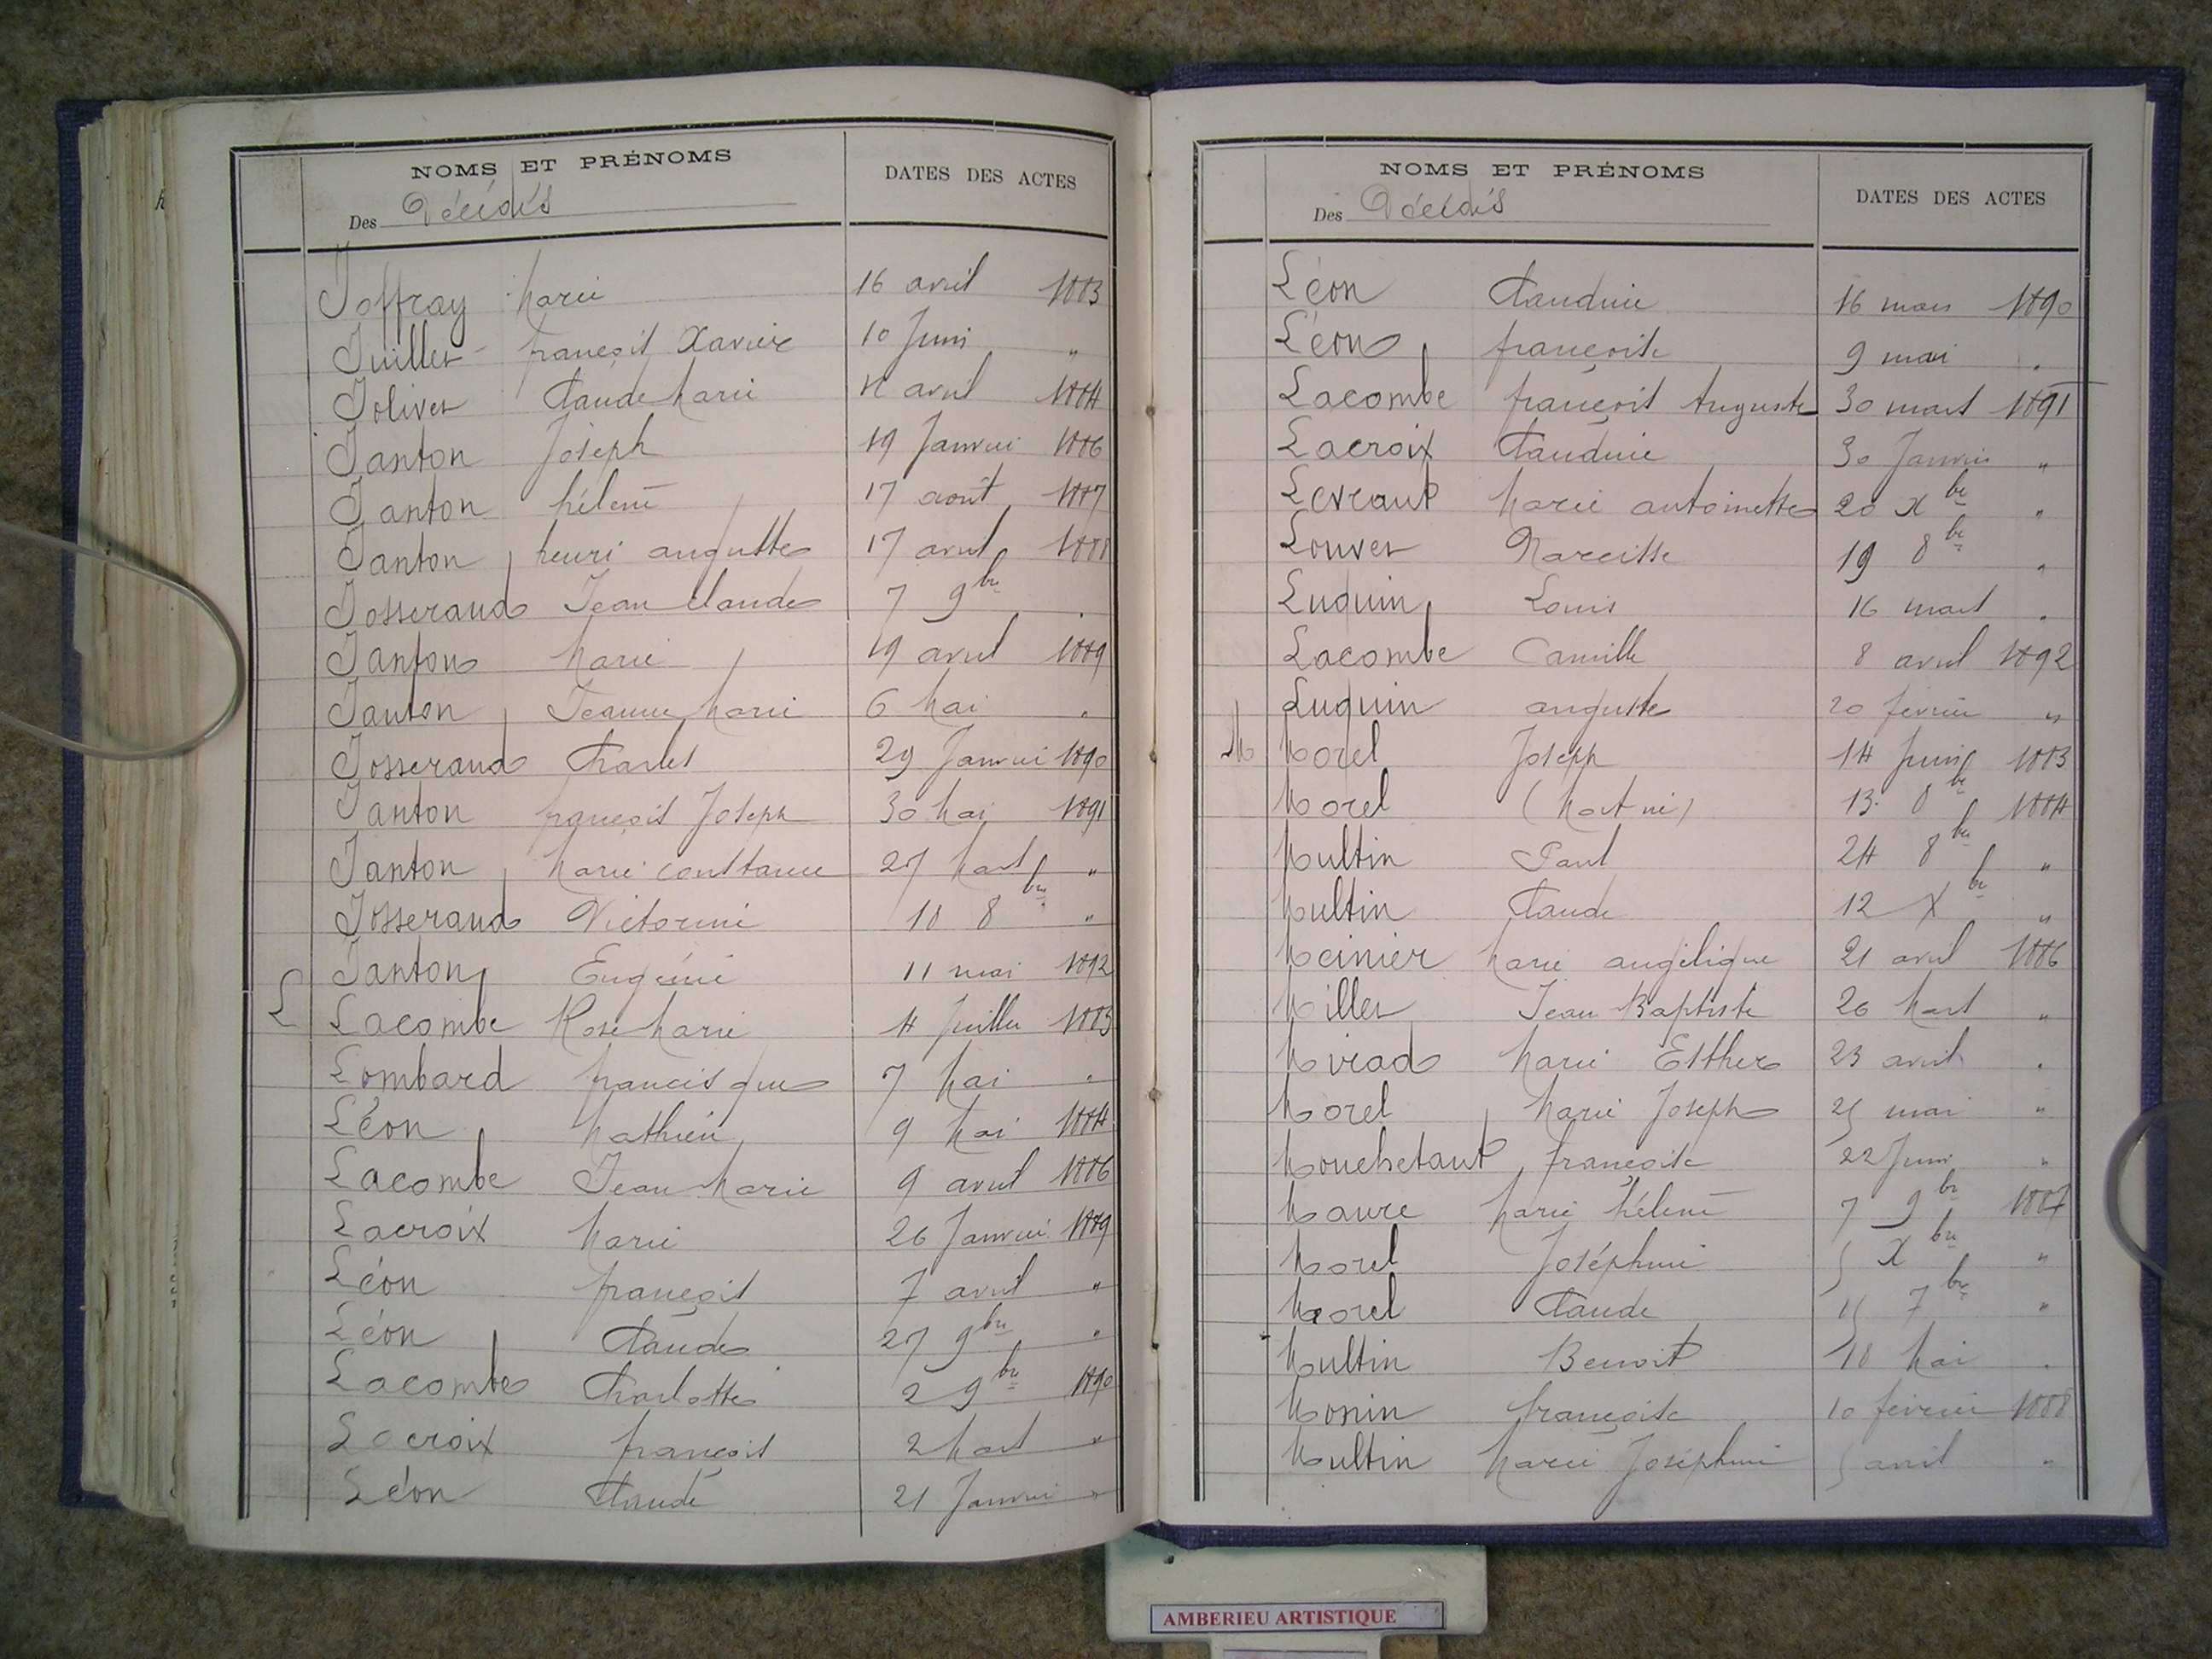 NOMS ET PRÉNOMS DATES DES ACTES
Des Décédés
Joffray Marie 16 avril 1883
Juillet françois Xavier 10 Juin "
Jolivet Claude Marie 4 avril 1884
Janton Joseph 19 Janvier 1886
Janton hélène 17 août 1887
Janton henri auguste 17 avril 1888
Josserand Jean Claude 7 9bre "
Janton Marie 19 avril 1889
Janton Jeanne Marie 6 Mai "
Josserand Charles 29 Janvier 1890
Janton françois Joseph 30 Mai 1891
Janton Marie constance 27 Mars "
Josserand Victorine 18 8bre "
Janton Eugénie 11 mai 1892
L Lacombe Rose Marie 4 Juillet 1883
Lombard francisque 7 Mai "
Léon Mathieu 9 Mai 1884
Lacombe Jean Marie 9 avril 1886
Lacroix Marie 26 Janvier 1889
Léon françois 7 avril "
Léon Claude 27 9bre "
Lacombe Charlotte 2 9bre 1890
Lacroix françois 2 Mars "
Léon Claude 21 Janvier "
NOMS ET PRÉNOMS DATES DES ACTES
Des Décédés
Léon Claudine 16 mars 1890
Léon françoise 9 mai "
Lacombe françois Auguste 30 mars 1891
Lacroix Claudine 30 Janvier "
Levraut Marie antoinette 20 Xbre "
Louvet Narcisse 19 8bre "
Luquin Louis 16 mars "
Lacombe Camille 8 avril 1892
Luquin auguste 20 février "
M Morel Joseph 14 Juin 1883
Morel (Mort né) 13 8bre 1884
Multin Paul 24 8bre "
Multin Claude 12 Xbre "
Meinier Marie angélique 21 avril 1886
Millet Jean Baptiste 26 Mars "
Mirad Marie Esther 23 avril "
Morel Marie Joseph 25 mai "
Mouchetant françoise 22 Juin "
Maure Marie hélène 7 9bre 1887
Morel Joséphine 5 Xbre "
Morel Claude 15 7bre "
Multin Benoit 18 Mai "
Monin françoise 10 février 1888
Multin Marie Joséphine 5 avril "
AMBERIEU ARTISTIQUE